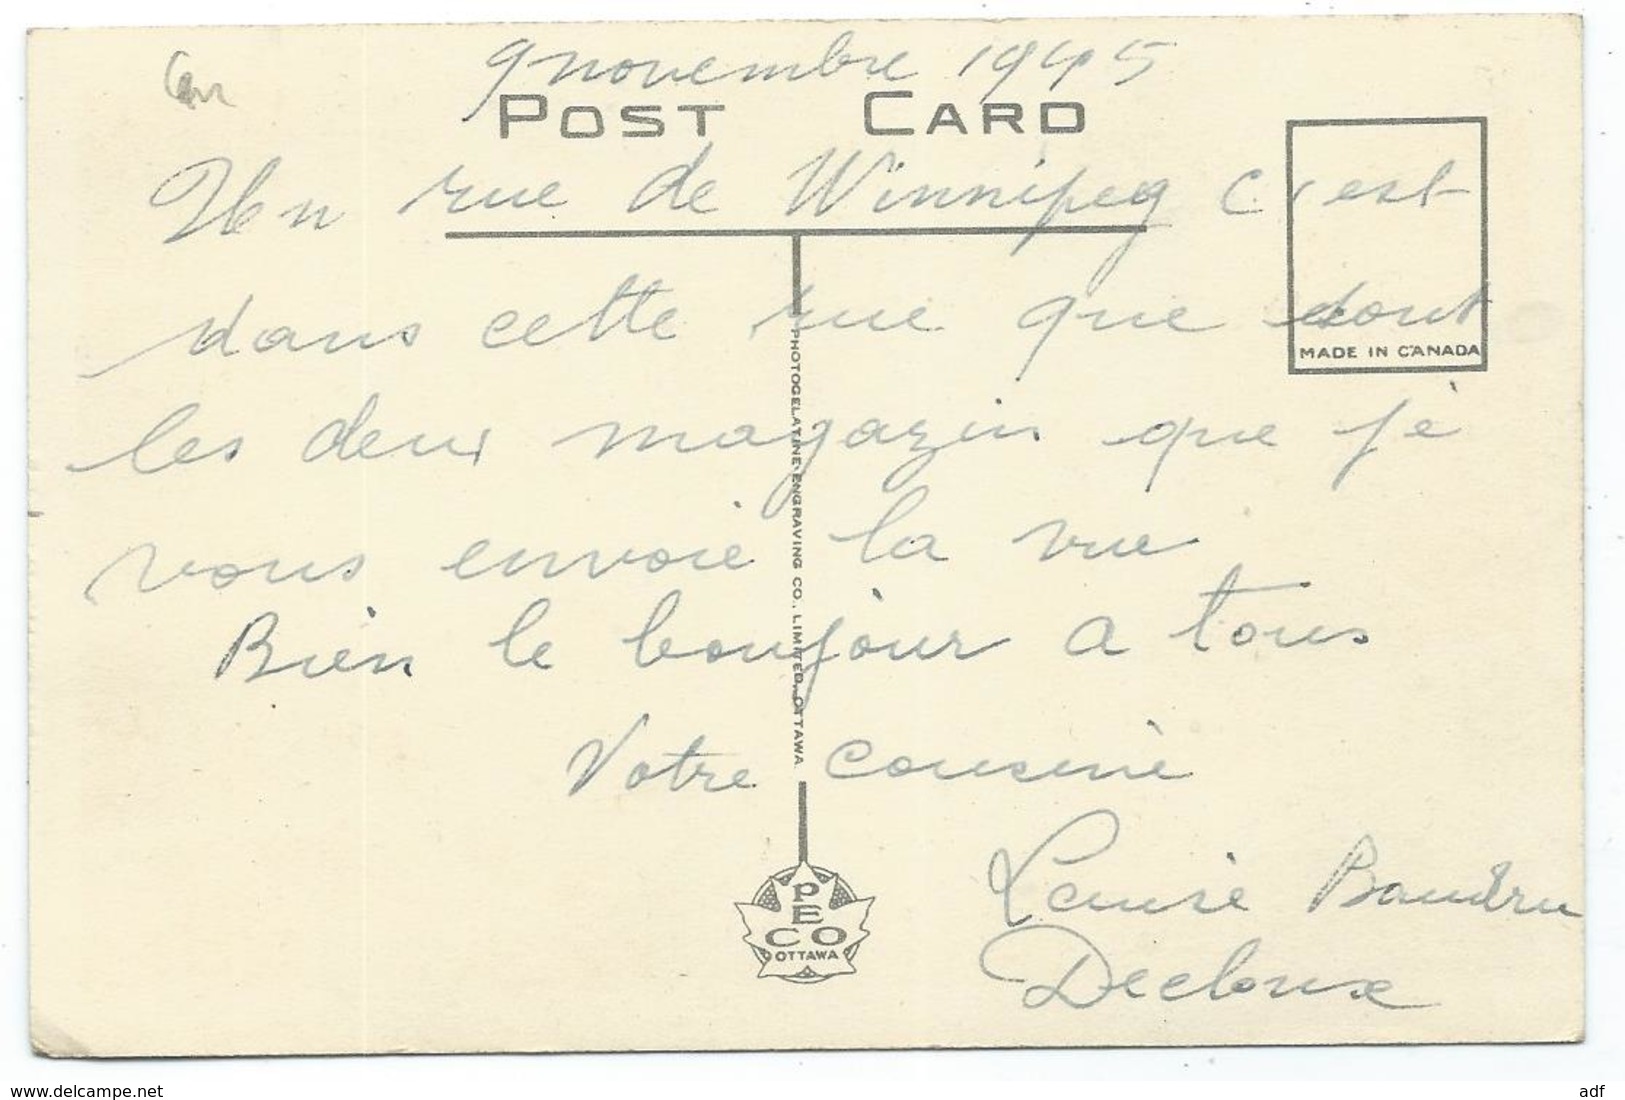 9 novembre 1945
POST CARD
Un rue de Winnipeg c'est
dans cette rue que dont
MADE IN CANADA
les deux magazin que jè
vous envoie la vue
Bien le bonjour a tous
Votre cousine
Louise
Decloux
PHOTOGELATINE ENGRAVING CO., LIMITED, OTTAWA
PECO
OTTAWA
www.delcampe.net
adf